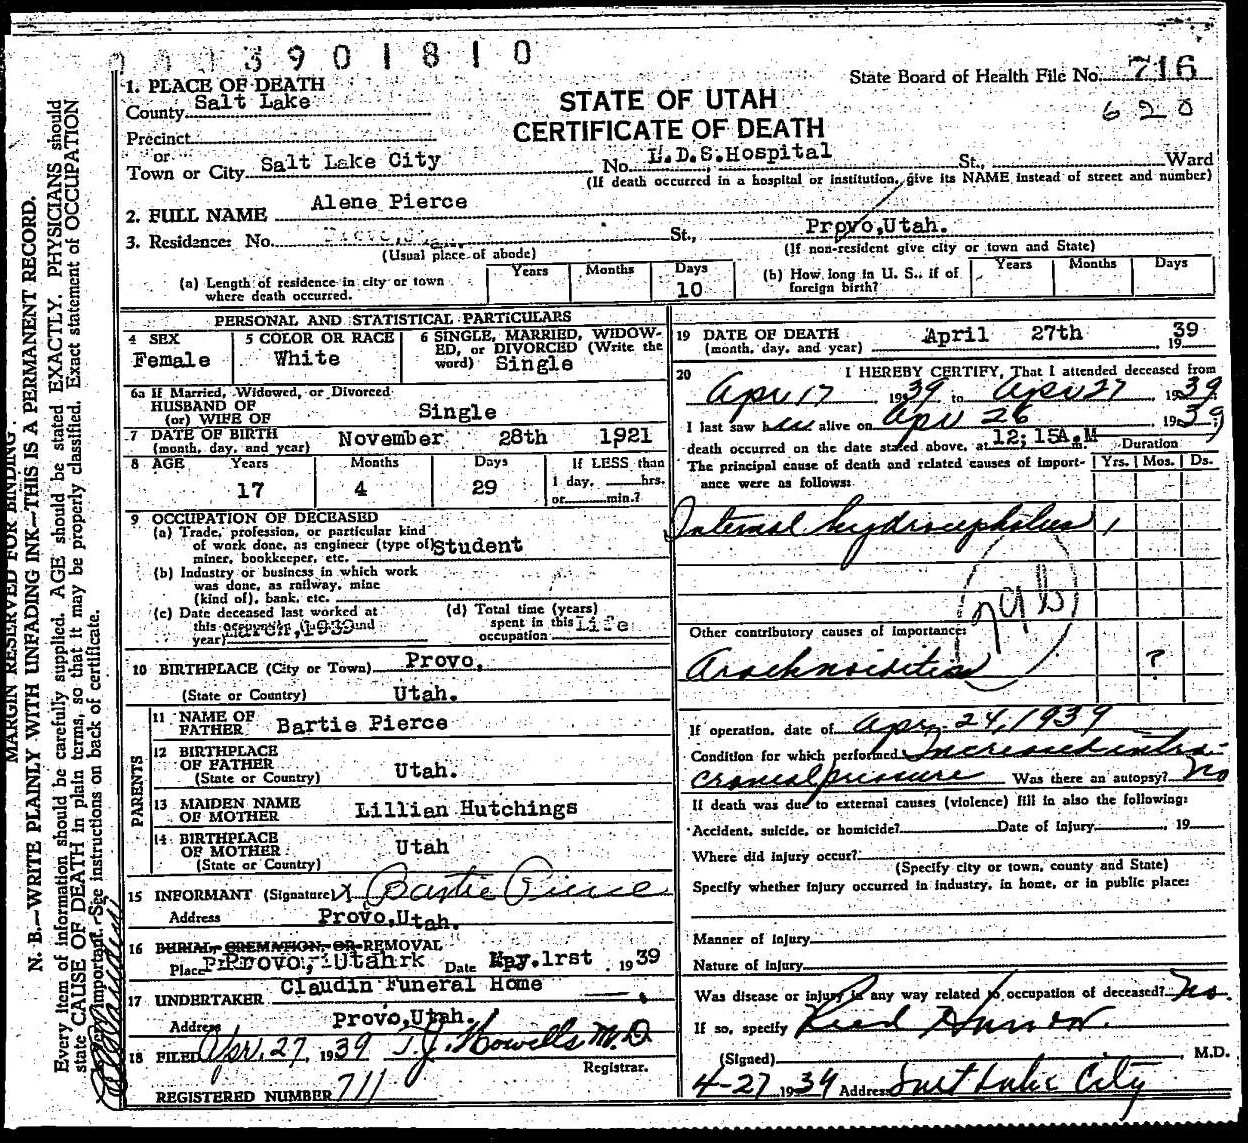 3901810
State Board of Health File No. 716
620
1. PLACE OF DEATH
County Salt Lake
STATE OF UTAH
CERTIFICATE OF DEATH
Precinct
or
Town or City Salt Lake City No. L.D.S. Hospital St., Ward
(If death occurred in a hospital or institution, give its NAME instead of street and number)
2. FULL NAME Alene Pierce
3. Residence: No. St., Provo, Utah.
(Usual place of abode) (If non-resident give city or town and State)
(a) Length of residence in city or town where death occurred. Years Months Days 10
(b) How long in U. S., if of foreign birth? Years Months Days
PERSONAL AND STATISTICAL PARTICULARS
4 SEX Female
5 COLOR OR RACE White
6 SINGLE, MARRIED, WIDOWED, or DIVORCED (Write the word) Single
6a If Married, Widowed, or Divorced
HUSBAND OF
(or) WIFE OF Single
7 DATE OF BIRTH
(month, day, and year) November 28th 1921
8 AGE Years 17 Months 4 Days 29 If LESS than
1 day, hrs.
or min.?
9 OCCUPATION OF DECEASED
(a) Trade, profession, or particular kind
of work done, as engineer (type of) Student
miner, bookkeeper, etc.
(b) Industry or business in which work
was done, as railway, mine
(kind of), bank, etc.
(c) Date deceased last worked at
this occupation and
year) March, 1939
(d) Total time (years)
spent in this Life
occupation
10 BIRTHPLACE (City or Town) Provo,
(State or Country) Utah.
PARENTS
11 NAME OF
FATHER Bartie Pierce
12 BIRTHPLACE
OF FATHER
(State or Country) Utah.
13 MAIDEN NAME
OF MOTHER Lillian Hutchings
14 BIRTHPLACE
OF MOTHER
(State or Country) Utah
15 INFORMANT (Signature) X Bartie Pierce
Address Provo, Utah.
16 BURIAL, CREMATION, OR REMOVAL
Place Provo, Utah Date May. 1rst, 1939
17 UNDERTAKER Claudin Funeral Home
Address Provo, Utah.
18 FILED Apr. 27, 1939 T. J. Howells M.D
Registrar.
REGISTERED NUMBER 711
19 DATE OF DEATH
(month, day, and year) April 27th 1939
20 I HEREBY CERTIFY, That I attended deceased from
Apr 17 1939 to Apr 27 1939
I last saw her alive on Apr 26 1939;
death occurred on the date stated above, at 12;15A.M m. Duration
The principal cause of death and related causes of importance were as follows: Yrs. Mos. Ds.
Internal hydrocephalus 1
Other contributory causes of importance:
Arachnoiditis ?
If operation, date of Apr. 24, 1939
Condition for which performed Increased intra-
cranial pressure Was there an autopsy? No
If death was due to external causes (violence) fill in also the following:
Accident, suicide, or homicide? Date of injury , 19
Where did injury occur?
(Specify city or town, county and State)
Specify whether injury occurred in industry, in home, or in public place:
Manner of injury
Nature of injury
Was disease or injury in any way related to occupation of deceased? No.
If so, specify
(Signed) Reed M.D.
4-27 1939 Address Salt Lake City
MARGIN RESERVED FOR BINDING.
N. B.—WRITE PLAINLY WITH UNFADING INK—THIS IS A PERMANENT RECORD.
Every item of information should be carefully supplied. AGE should be stated EXACTLY. PHYSICIANS should
state CAUSE OF DEATH in plain terms, so that it may be properly classified. Exact statement of OCCUPATION
important. See instructions on back of certificate.